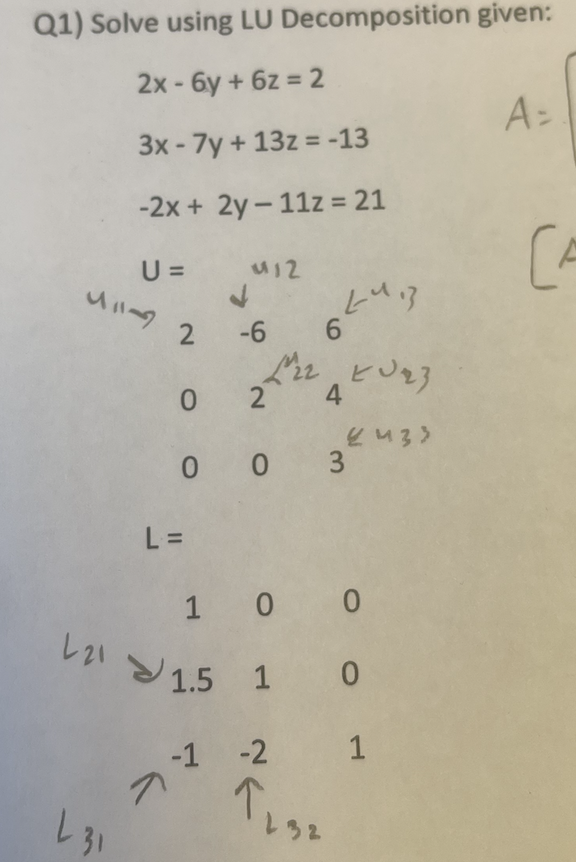 Q1) Solve using LU Decomposition given:
2x - 6y + 6z = 2
A = [
3x - 7y + 13z = -13
-2x + 2y – 11z = 21
[A
U = u12
u11 u13
2 -6 6
u22 u23
0 2 4
u33
0 0 3
L =
1 0 0
L21
1.5 1 0
-1 -2 1
L31 L32